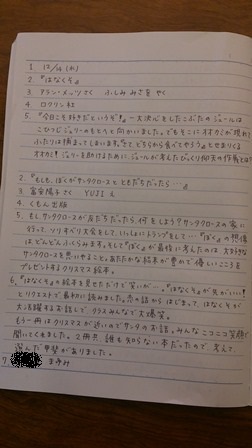 1. 12/14 (水)
2. 『はなくそ』
3. アラン・メッツ さく ふしみ みさを やく
4. ロクリン社
5. 「今日こそ好きだというぞ!」一大決心をしたこぶたのジュールは
こひつじジュリーのもとへと向かいました。でもそこにオオカミが現れて
ふたりは捕まってしまいます。「さてどちらから食べてやろう」とせまりくる
オオカミ!ジュリーを助けるためにジュールが考えたびっくり仰天の作戦とは?
2. 『もしも、ぼくがサンタクロースとともだちだったら…』
3. 富安陽子 さく YUJI え
4. くもん出版
5. もしサンタクロースが友だちだったら、何をしよう?サンタクロースの家に
行って、ソリすべり大会をして、いっしょにトランプをして…『ぼく』の想像
はどんどんふくらみます。そして『ぼく』が最後に考えたのは、大好きな
サンタクロースを思いやること。あたたかな結末が豊かで優しいこころを
プレゼントするクリスマス絵本。
6. 『はなくそ』の絵本を見せただけで笑いが…。『はなくそ』の方がいい!
とリクエストで最初に読みました。恋の話からはじまって、はなくそが
大活躍するお話しで、クラスみんなで大爆笑。
もう一冊はクリスマスが近いのでサンタのお話。みんなニコニコ笑顔で
聞いてくれました。2冊共、誰も知らない本だったので、考えて
選んだ甲斐がありました。
7 まゆみ